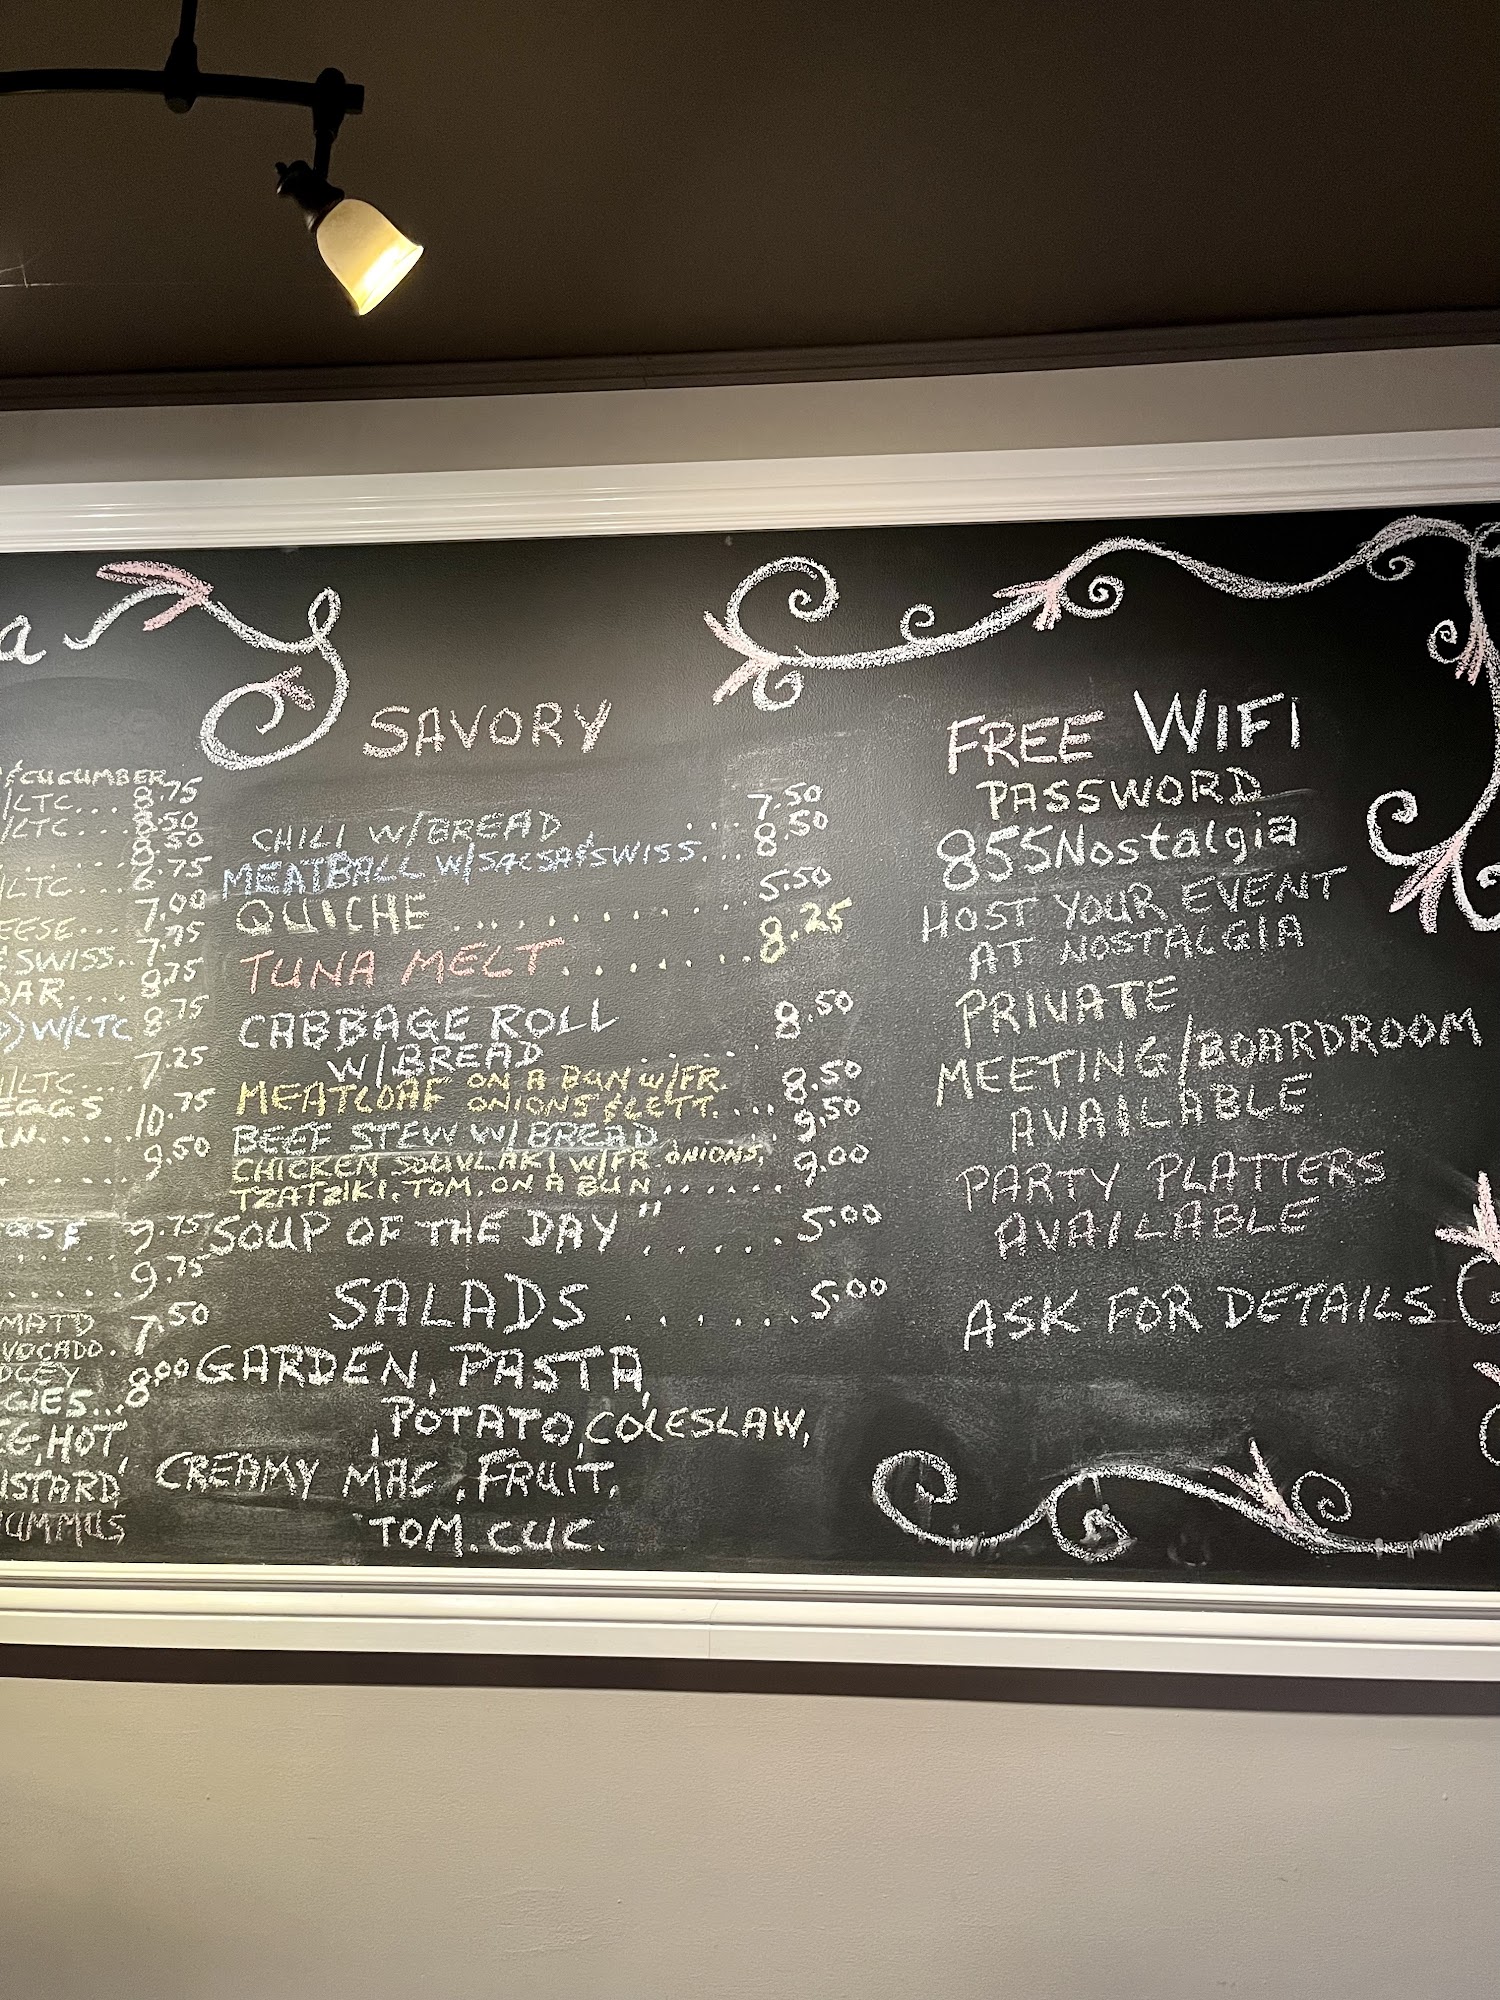 a
&CUCUMBER
/LTC... 8.75
/LTC... 8.50
8.50
/LTC... 6.75
EESE... 7.00
& SWISS.. 7.75
DAR.... 8.75
) W/LTC 8.75
/LTC.... 7.25
EGGS
N..... 10.75
....... 9.50
9.75
...... 9.75
MATO 7.50
VOCADO.
GIES... 8.00
GG, HOT,
USTARD,
UMMUS
SAVORY
CHILI W/BREAD .... 7.50
MEATBALL W/SALSA&SWISS... 8.50
QUICHE ........... 5.50
TUNA MELT........ 8.25
CABBAGE ROLL 8.50
W/BREAD ......
MEATLOAF ON A BUN W/FR. 8.50
ONIONS & LETT....
BEEF STEW W/BREAD .... 9.50
CHICKEN SOUVLAKI W/FR. ONIONS, 9.00
TZATZIKI. TOM. ON A BUN.......
SOUP OF THE DAY" ...... 5.00
SALADS ....... 5.00
GARDEN, PASTA,
POTATO, COLESLAW,
CREAMY MAC, FRUIT,
TOM. CUC.
FREE WIFI
PASSWORD
855Nostalgia
HOST YOUR EVENT
AT NOSTALGIA
PRIVATE
MEETING/BOARDROOM
AVAILABLE
PARTY PLATTERS
AVAILABLE
ASK FOR DETAILS